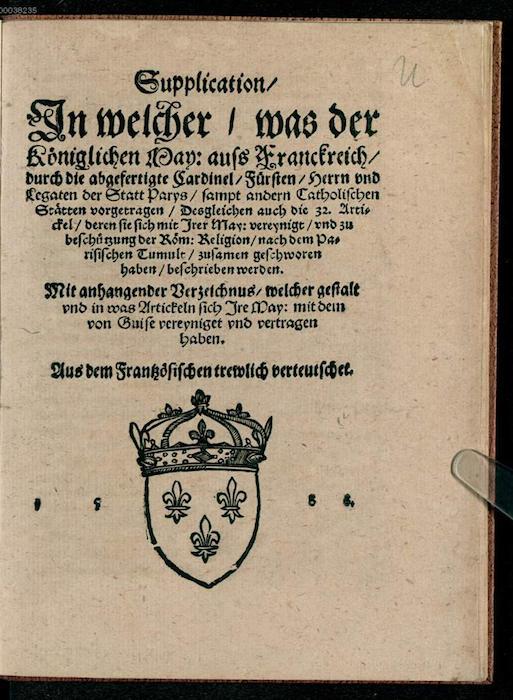 00038235
Supplication/
In welcher / was der
Königlichen May: auss Franckreich/
durch die abgefertigte Cardinel/ Fürsten/ Herrn vnd
Legaten der Statt Parys/ sampt andern Catholischen
Stätten vorgetragen/ Desgleichen auch die 32. Arti-
ckel/ deren sie sich mit Irer May: vereynigt/ vnd zu
beschützung der Röm: Religion/ nach dem Pa-
risischen Tumult/ zusamen geschworen
haben/ beschrieben werden.
Mit anhangender Verzeichnus/ welcher gestalt
vnd in was Artickeln sich Ire May: mit dem
von Guise vereyniget vnd vertragen
haben.
Aus dem Frantzösischen trewlich verteutschet.
1 5 8 8.